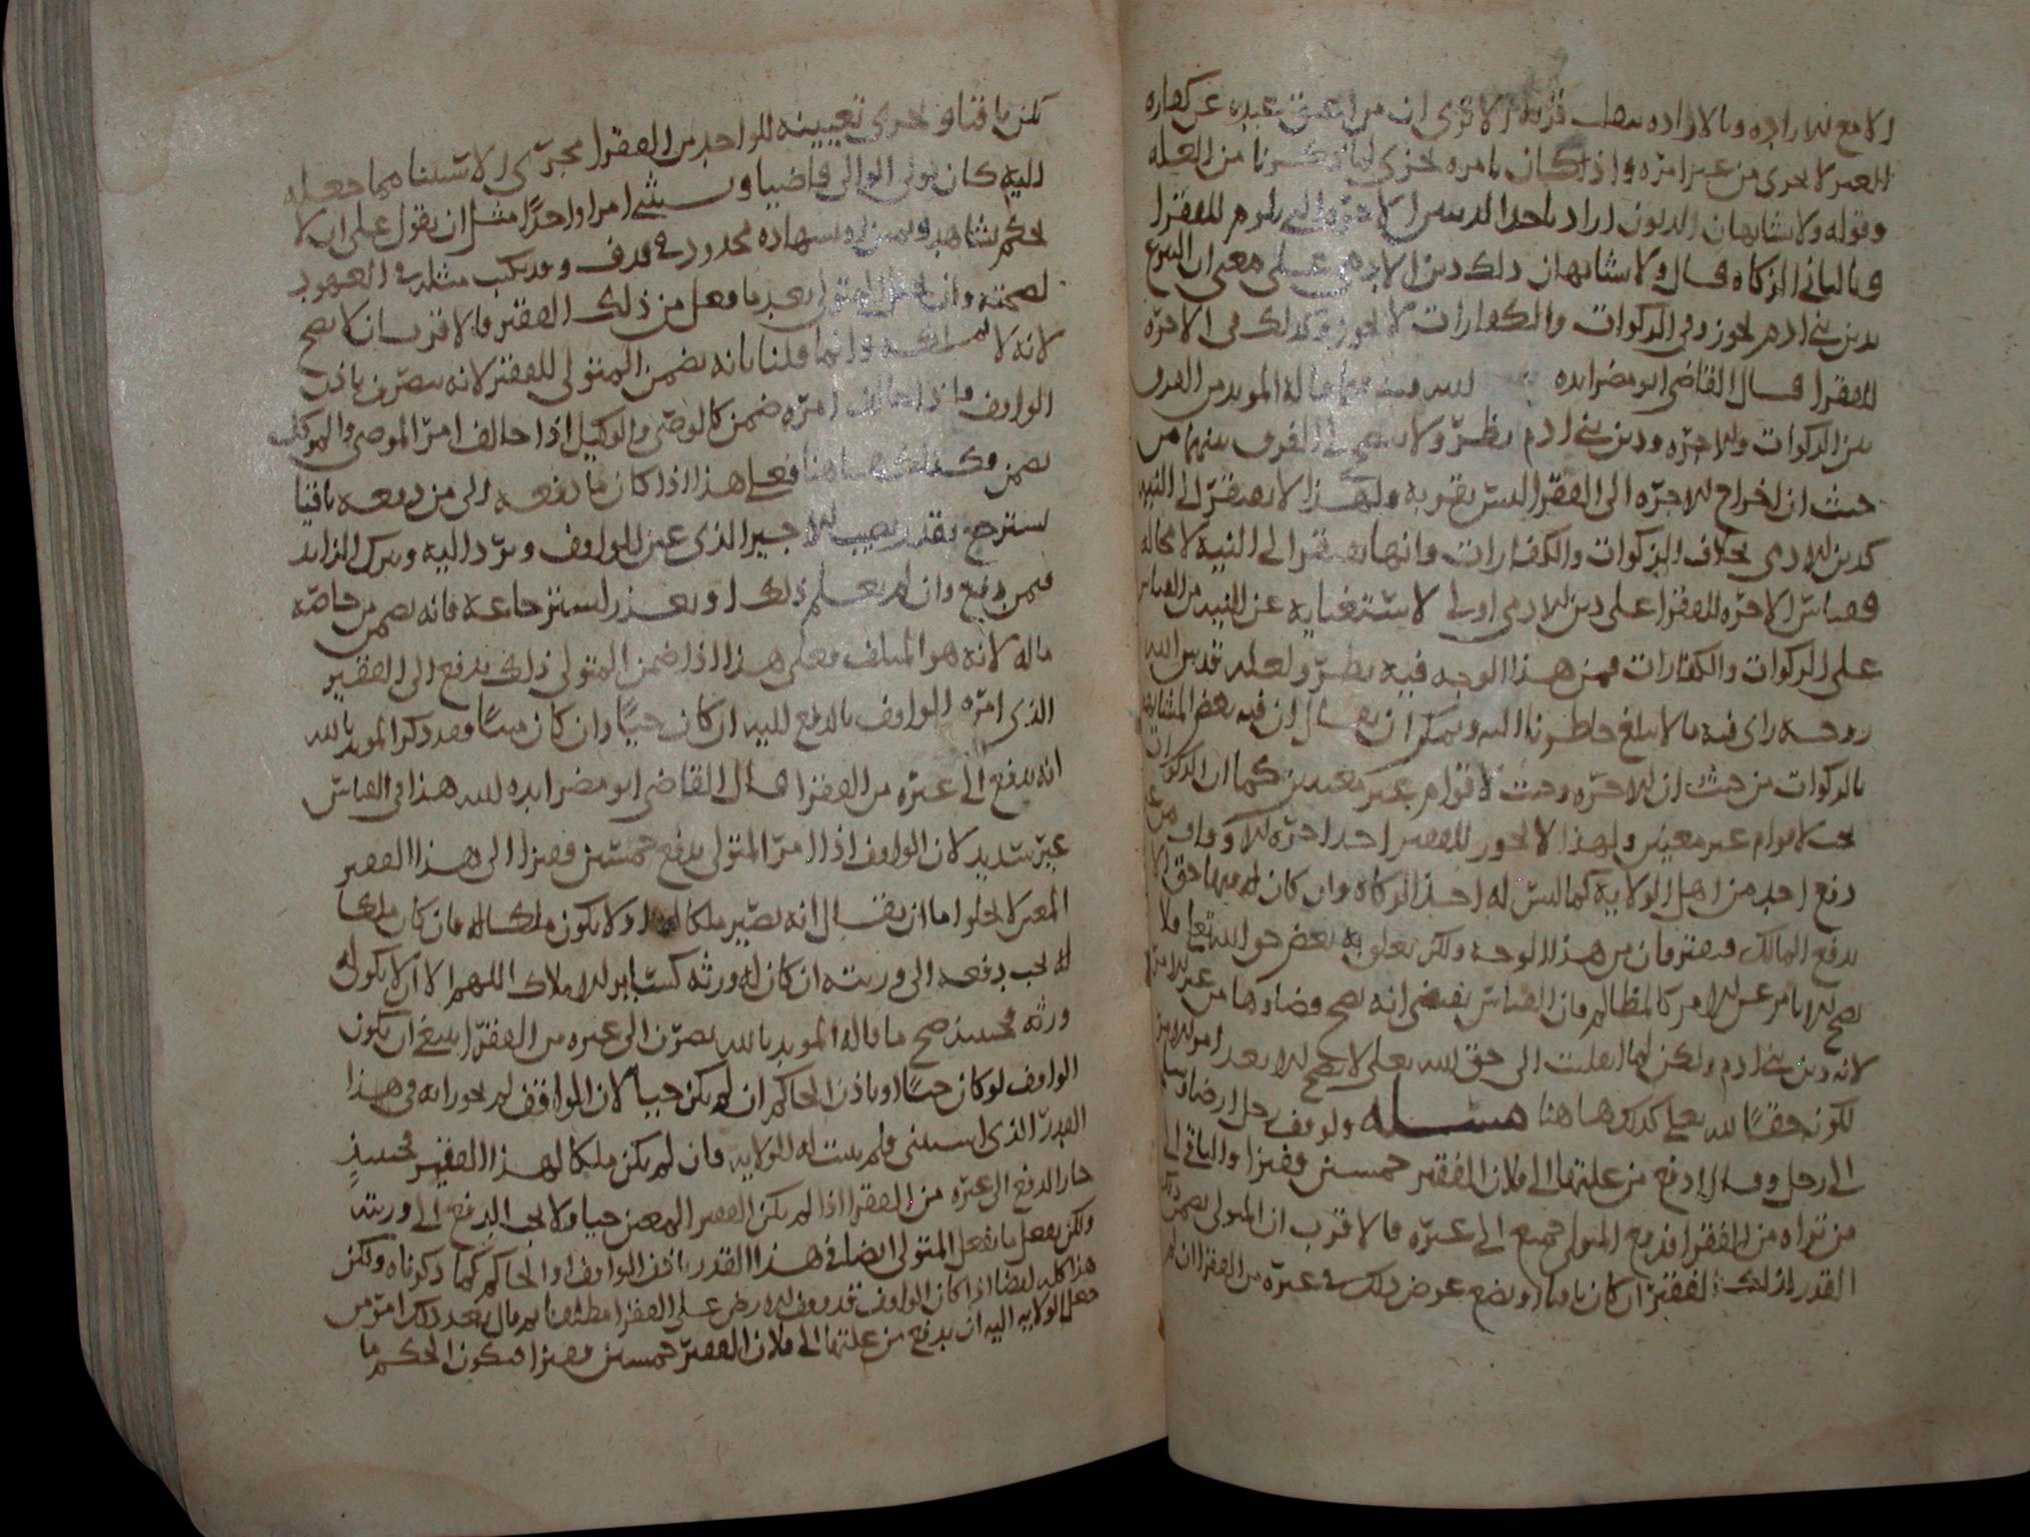 الا مع الارادة وبالارادة يصلـ قربة الا ترى ان من اعتق عبده عن كفارة
الغير لا يجزي من غير امره واذا كان بامره يجزي لما ذكرنا من العلة
وقوله ولا يشابهان الديون اراد باحد الدينين الاجرة التي يلزم للفقرا
وبالثاني الزكاة قال ولا يشابهان ذلك دين الادمي على معنى ان التبرع
بدين بني ادم يجوز وفي الزكوات والكفارات لا يجوز وكذلك في الاجرة
للفقرا قال القاضي ابو مضر ايده الله وفيما قاله المويد من الفرق
بين الزكوات والاجرة ودين بني ادم نظر ولا يتضح لي الفرق بينهما من
حيث ان اخراج الاجرة الى الفقرا ليس بقربة ولهذا لا يفتقر الى النية
كدين الادمي بخلاف الزكوات والكفارات وانها يفتقر الى النية لا محالة
فقياس الاجرة للفقرا على دين الادمي اولى لاستغنايه عن النية من القياس
على الزكوات والكفارات فمن هذا الوجه فيه نظر ولعله قدس الله
روحه راى فيه ما لا يبلغ خاطرنا اليه ويمكن ان يقال ان فيه بعض المشابهة
بالزكوات من حيث ان الاجرة وجبت لاقوام غير معينين كما ان الزكوات
تجب لاقوام غير معينين ولهذا لا يجوز للفقير اخذ اجرة الاوقاف من غير
دفع احد من اهل الولاية كما ليس له اخذ الزكاة وان كان له فيها حق الا
بدفع المالك فيفترقان من هذا الوجه ولكن يعلق به بعض حق الله تعالى فلا
يصح الا بامر غير الامر كالمظالم فان القياس يقتضي انه يصح قضاوها من غير الامر
لانه دين بني ادم ولكن لما انقلبت الى حق الله تعالى لا يصح الا بعد امر الامر
لكونه حقا لله تعالى كذلك هاهنا مسئلة ولو وقف رجل ارضا وسلمها
الى رجل وقال ادفع من غلتها الى فلان الفقير خمسين قفيزا والباقي الى
من تراه من الفقرا فدفع المتولي جميع الى غيره فالاقرب ان المتولي يضمن ذلك
القدر لذلك الفقير ان كان باقيا او يضع عوض ذلك في غيره من الفقرا ان لم
يكن باقيا ويجري تعيينه للواحد من الفقرا مجرى الاستثنا مما جعله
اليه كان يولي الوالي قاضيا ويستثني امرا واحدا مثل ان يقول على ان لا
يحكم بشاهد ويمين او بشهادة محدود في قذف وقد يكتب مثله في العهود
لصحته وان المتولي بعد ما فعل من ذلك الفقير فالاقرب ان لا يصح
لانه لا يملكه وانما قلنا بانه يضمن المتولي للفقير لانه يتصرف باذن
الواقف فاذا خالف امره ضمن كالوصي والوكيل اذا خالف امر الموصي والموكل
يضمن وكذلك هاهنا فعلى هذا اذا كان ما دفعه الى من دفعه باقيا
يسترجع بقدر نصيب الاجير الذي عين الواقف ويرد اليه ويترك الزايد
فيمن دفع وان لم يعلم ذلك او تعذر استرجاعه فانه يضمن من خاصة
ماله لانه هو المتلف فعلى هذا اذا ضمن المتولي ذلك يدفع الى الفقير
الذي امره الواقف بالدفع اليه ان كان حيا وان كان ميتا فقد ذكر المويد بالله
انه يدفع الى غيره من الفقرا قال القاضي ابو مضر ايده الله هذا في القياس
غير سديد لان الواقف اذا امر المتولي بدفع خمسين قفيزا الى هذا الفقير
المعين لا يخلوا اما ان يقال انه يصير ملكا له او لا يكون ملكا له فان كان ملكا
له يجب دفعه الى ورثته ان كان له ورثة كسائر الاملاك اللهم الا ان لا يكون له
ورثة فحينئذ صح ما قاله المويد بالله بصرف الى غيره من الفقرا ينبغي ان يكون
الواقف لو كان حيا او باذن الحاكم ان لم يكن حيا لان الواقف لم يجوز له في هذا
القدر الذي استثنى ولم يثبت له الولاية فان لم يكن ملكا لهذا الفقير فحينئذ
جاز الدفع الى غيره من الفقرا اذا لم يكن الفقير المعين حيا ولا يجب الدفع الى ورثته
ولكن يفعل ما يفعل المتولي ايضا في هذا القدر باذن الواقف او الحاكم كما ذكرناه ولكن
هذا كله ايضا اذا كان الواقف قد وقف الارض على الفقرا مطلقا ثم قال بعد ذلك امر من
جعل الولاية اليه ان يدفع من غلتها الى فلان الفقير خمسين قفيزا فيكون الحكم ما